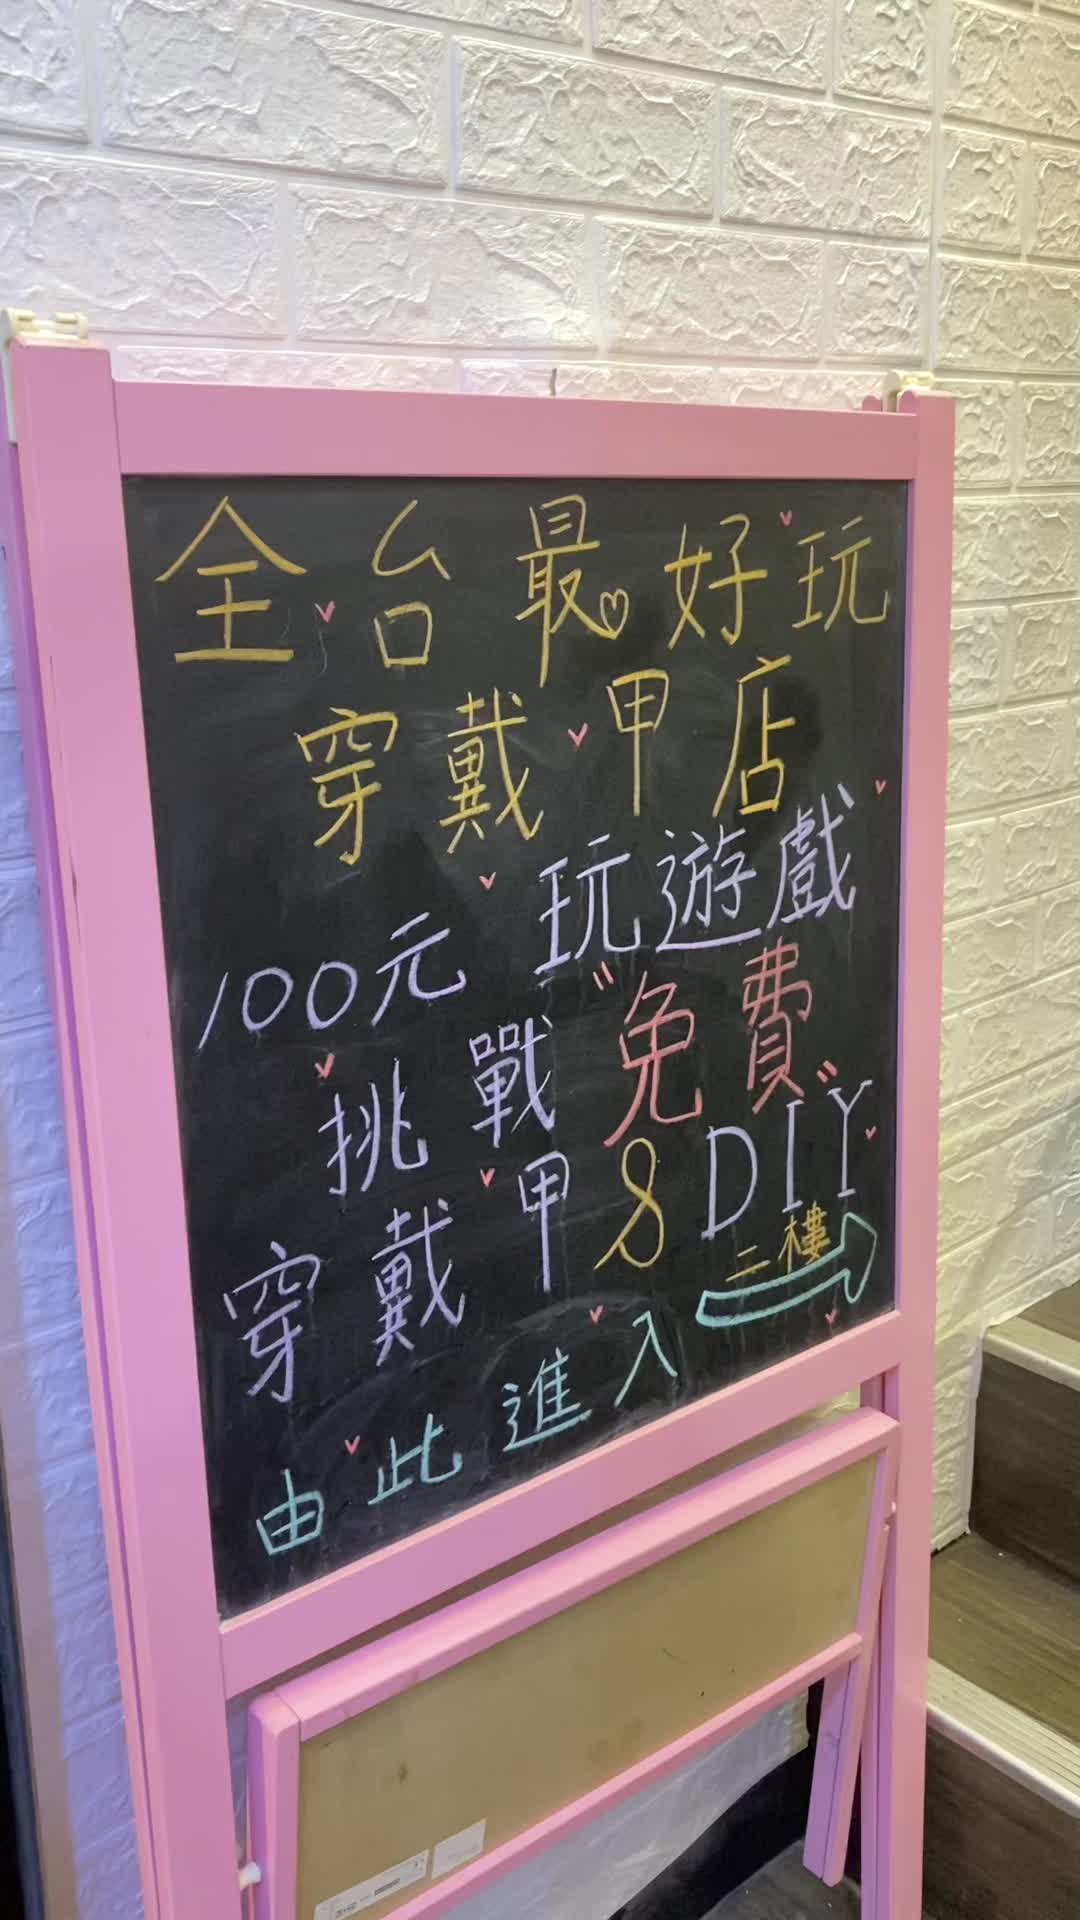 全台最好玩
穿戴甲店
100元 玩遊戲
挑戰"免費"
穿戴甲&DIY
二樓
由此進入